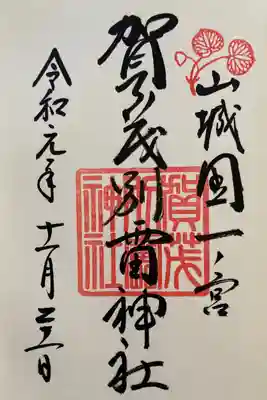 山城国一ノ宮
賀茂別雷神社
令和元年 十一月 日
賀茂
別雷
神社